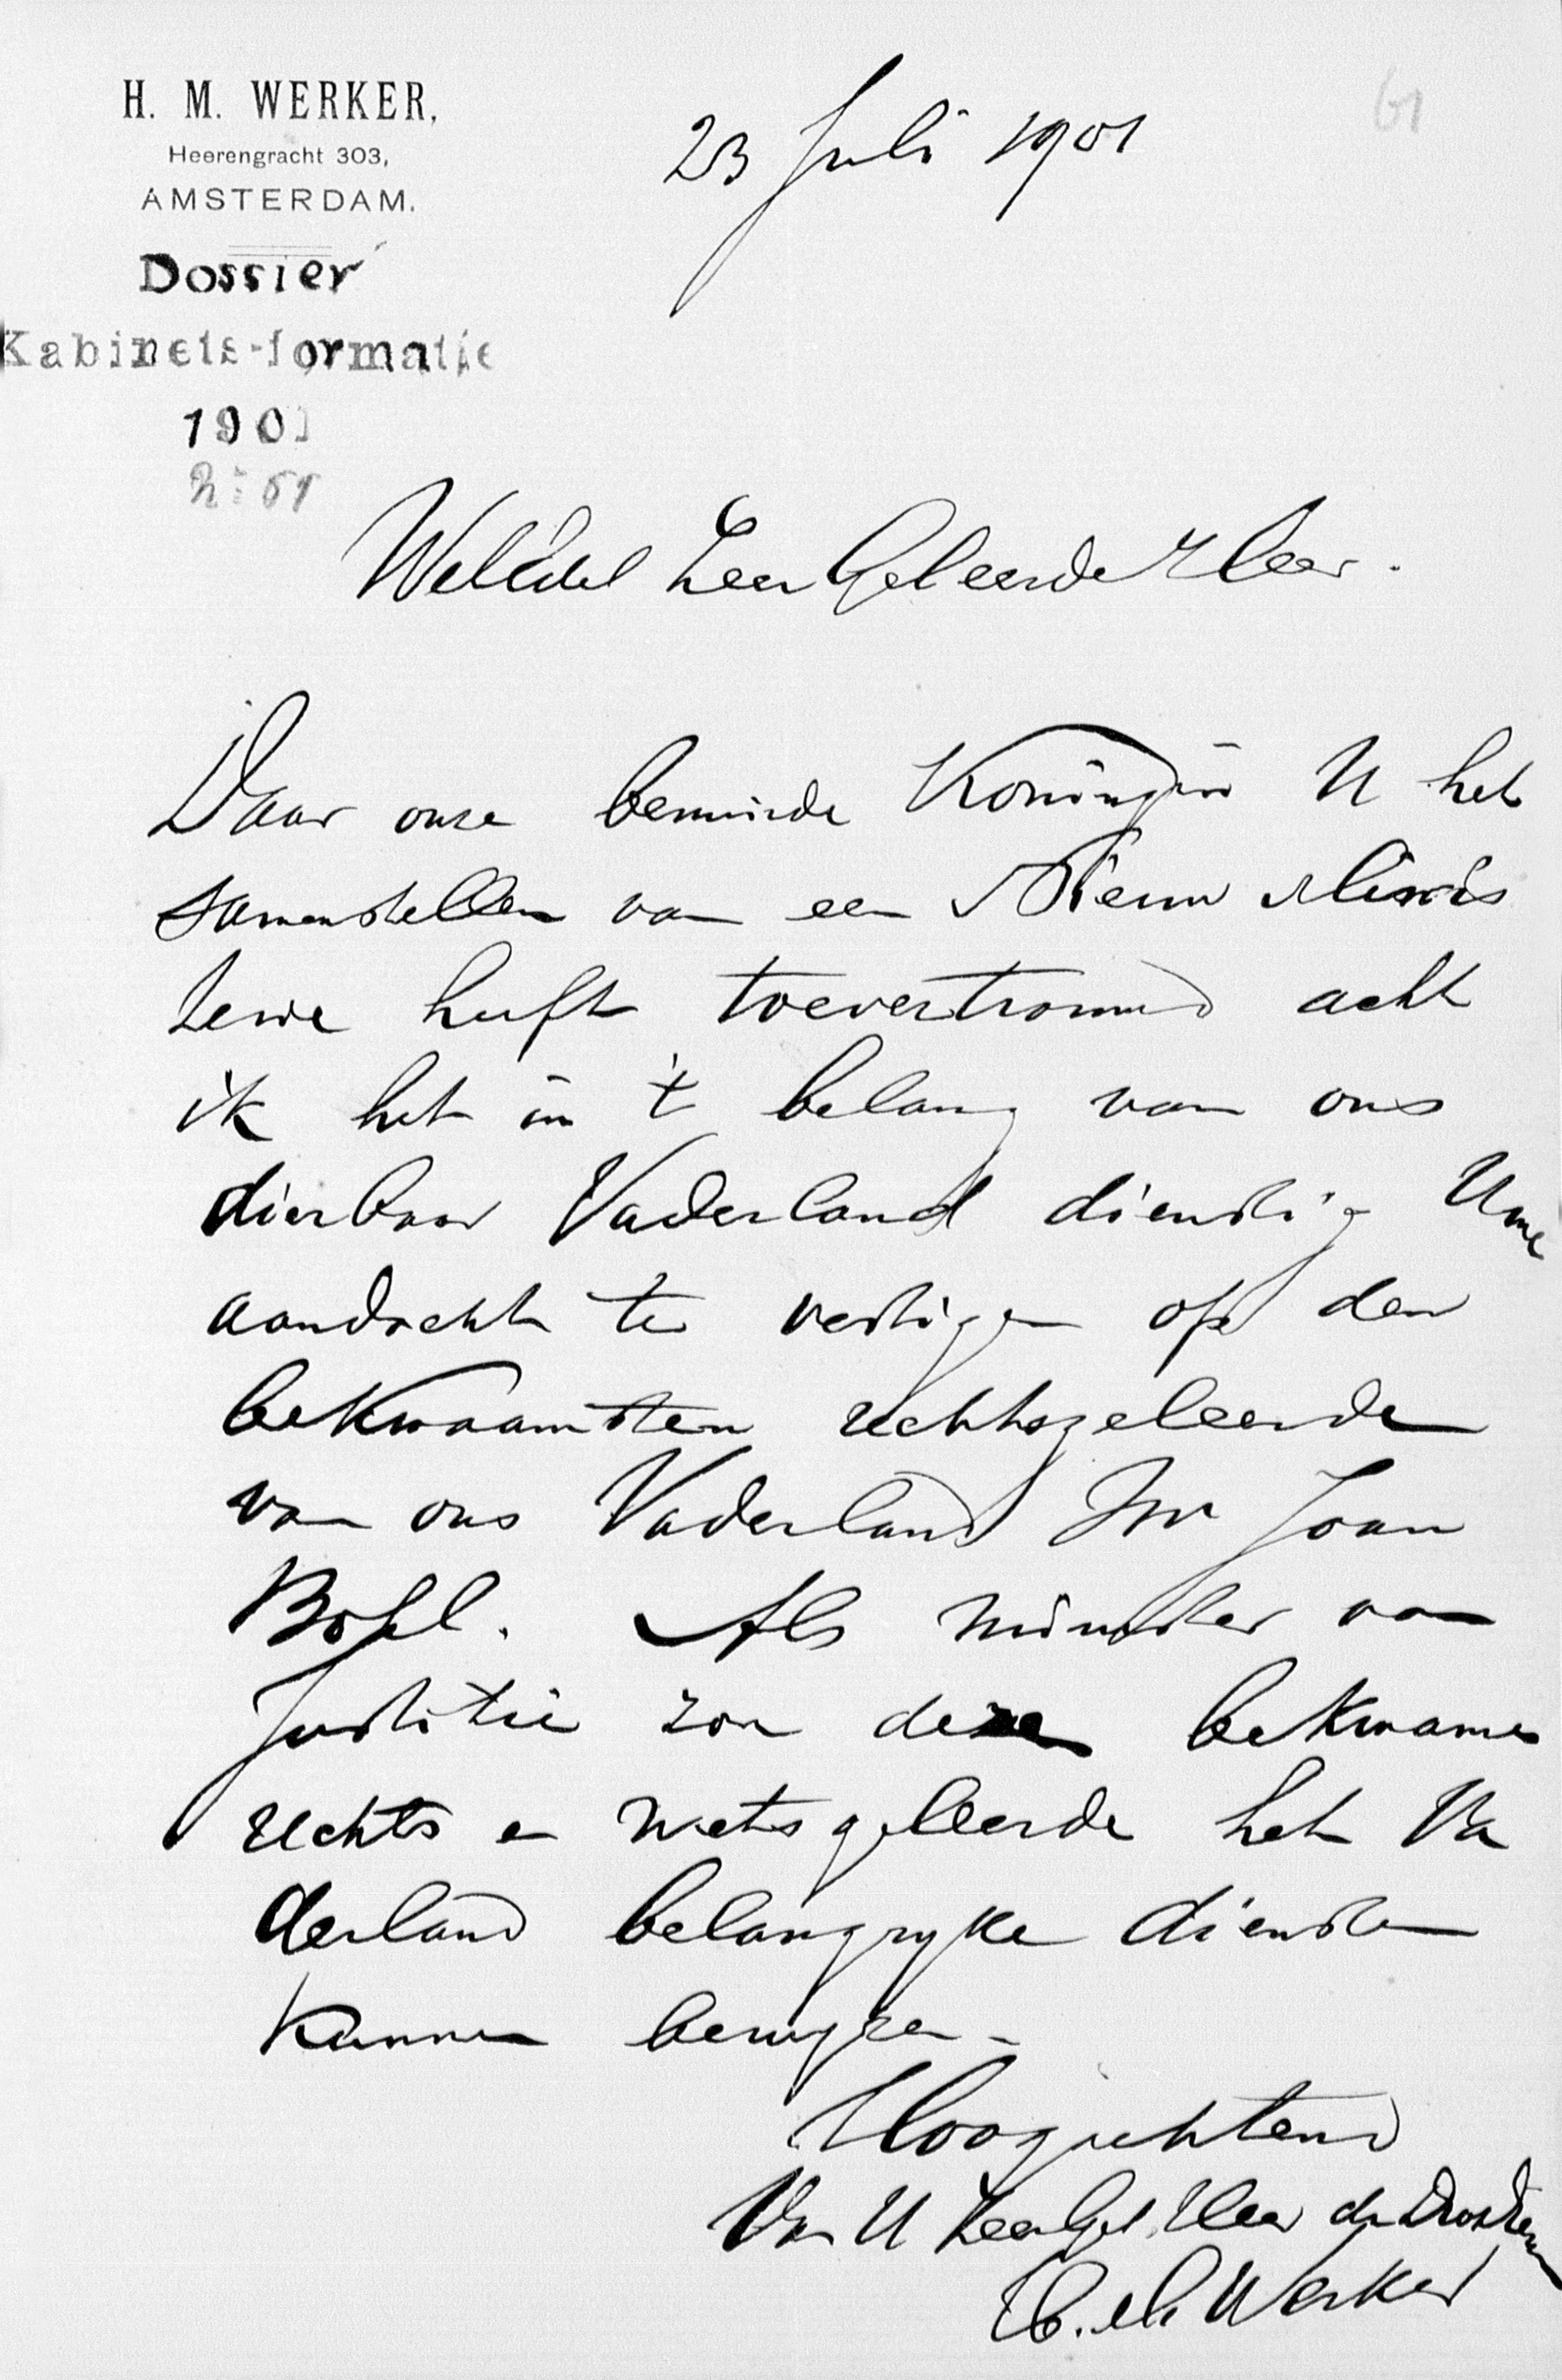 H. M. WERKER,
Heerengracht 303,
AMSTERDAM.
23 Juli 1901
61
Dossier
Kabinets-formatie
1901
No 61
WelEdel Zeer Geleerde Heer.
Daar onze beminde Koningin U het
samenstellen van een Nieuw Minis
terie heeft toevertrouwd acht
ik het in 't belang van ons
dierbaar Vaderland dienstig Uwe
aandacht te vestigen op den
bekwaamsten rechtsgeleerde
van ons Vaderland Mr Joan
Bohl. Als Minister van
Justitie zou deze bekwame
rechts en wetsgeleerde het Va
derland belangryke diensten
kunnen bewyzen.
Hoogachtend
Van U ZeerGel. Heer de
H. M. Werker